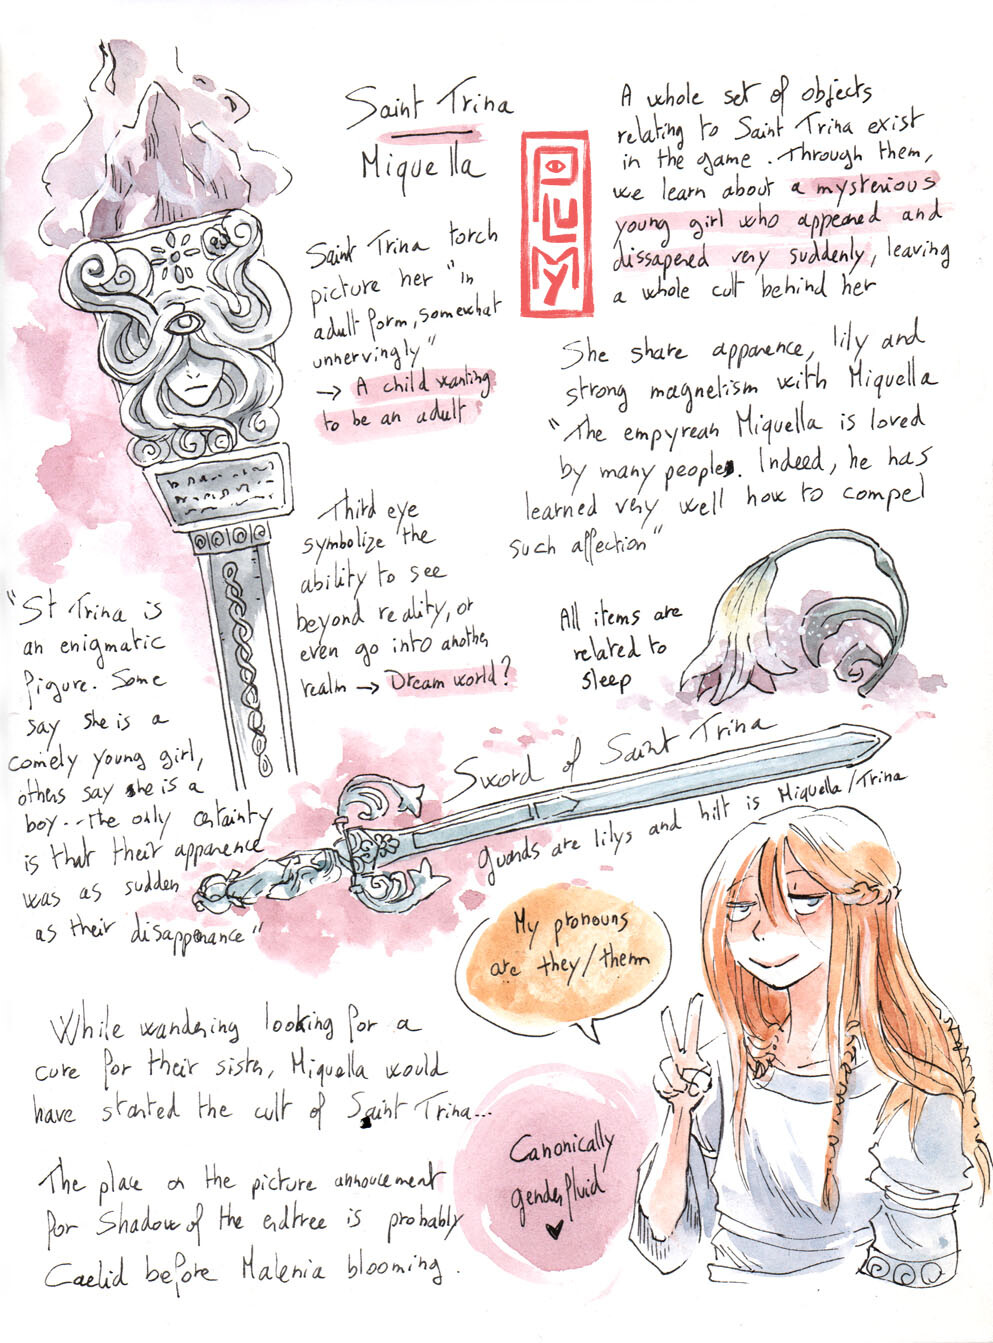 Saint Trina
Miquella
PLUMY
A whole set of objects
relating to Saint Trina exist
in the game. Through them,
we learn about a mysterious
young girl who appeared and
dissapered very suddenly, leaving
a whole cult behind her
Saint Trina torch
picture her "in
adult form, somewhat
unnervingly"
→ A child wanting
to be an adult
She share apparence, lily and
strong magnetism with Miquella
"The empyrean Miquella is loved
by many people. Indeed, he has
learned very well how to compel
such affection"
Third eye
symbolize the
ability to see
beyond reality, or
even go into another
realm → Dream world?
All items are
related to
sleep
"St Trina is
an enigmatic
figure. Some
say she is a
comely young girl,
others say he is a
boy.. the only certainty
is that their apparence
was as sudden
as their disapparance"
Sword of Saint Trina
Guards are lilys and hilt is Miquella/Trina
My pronouns
are they/them
While wandering looking for a
cure for their sister, Miquella would
have started the cult of Saint Trina...
Canonically
genderfluid
The place on the picture annoucement
for Shadow of the erdtree is probably
Caelid before Malenia blooming.